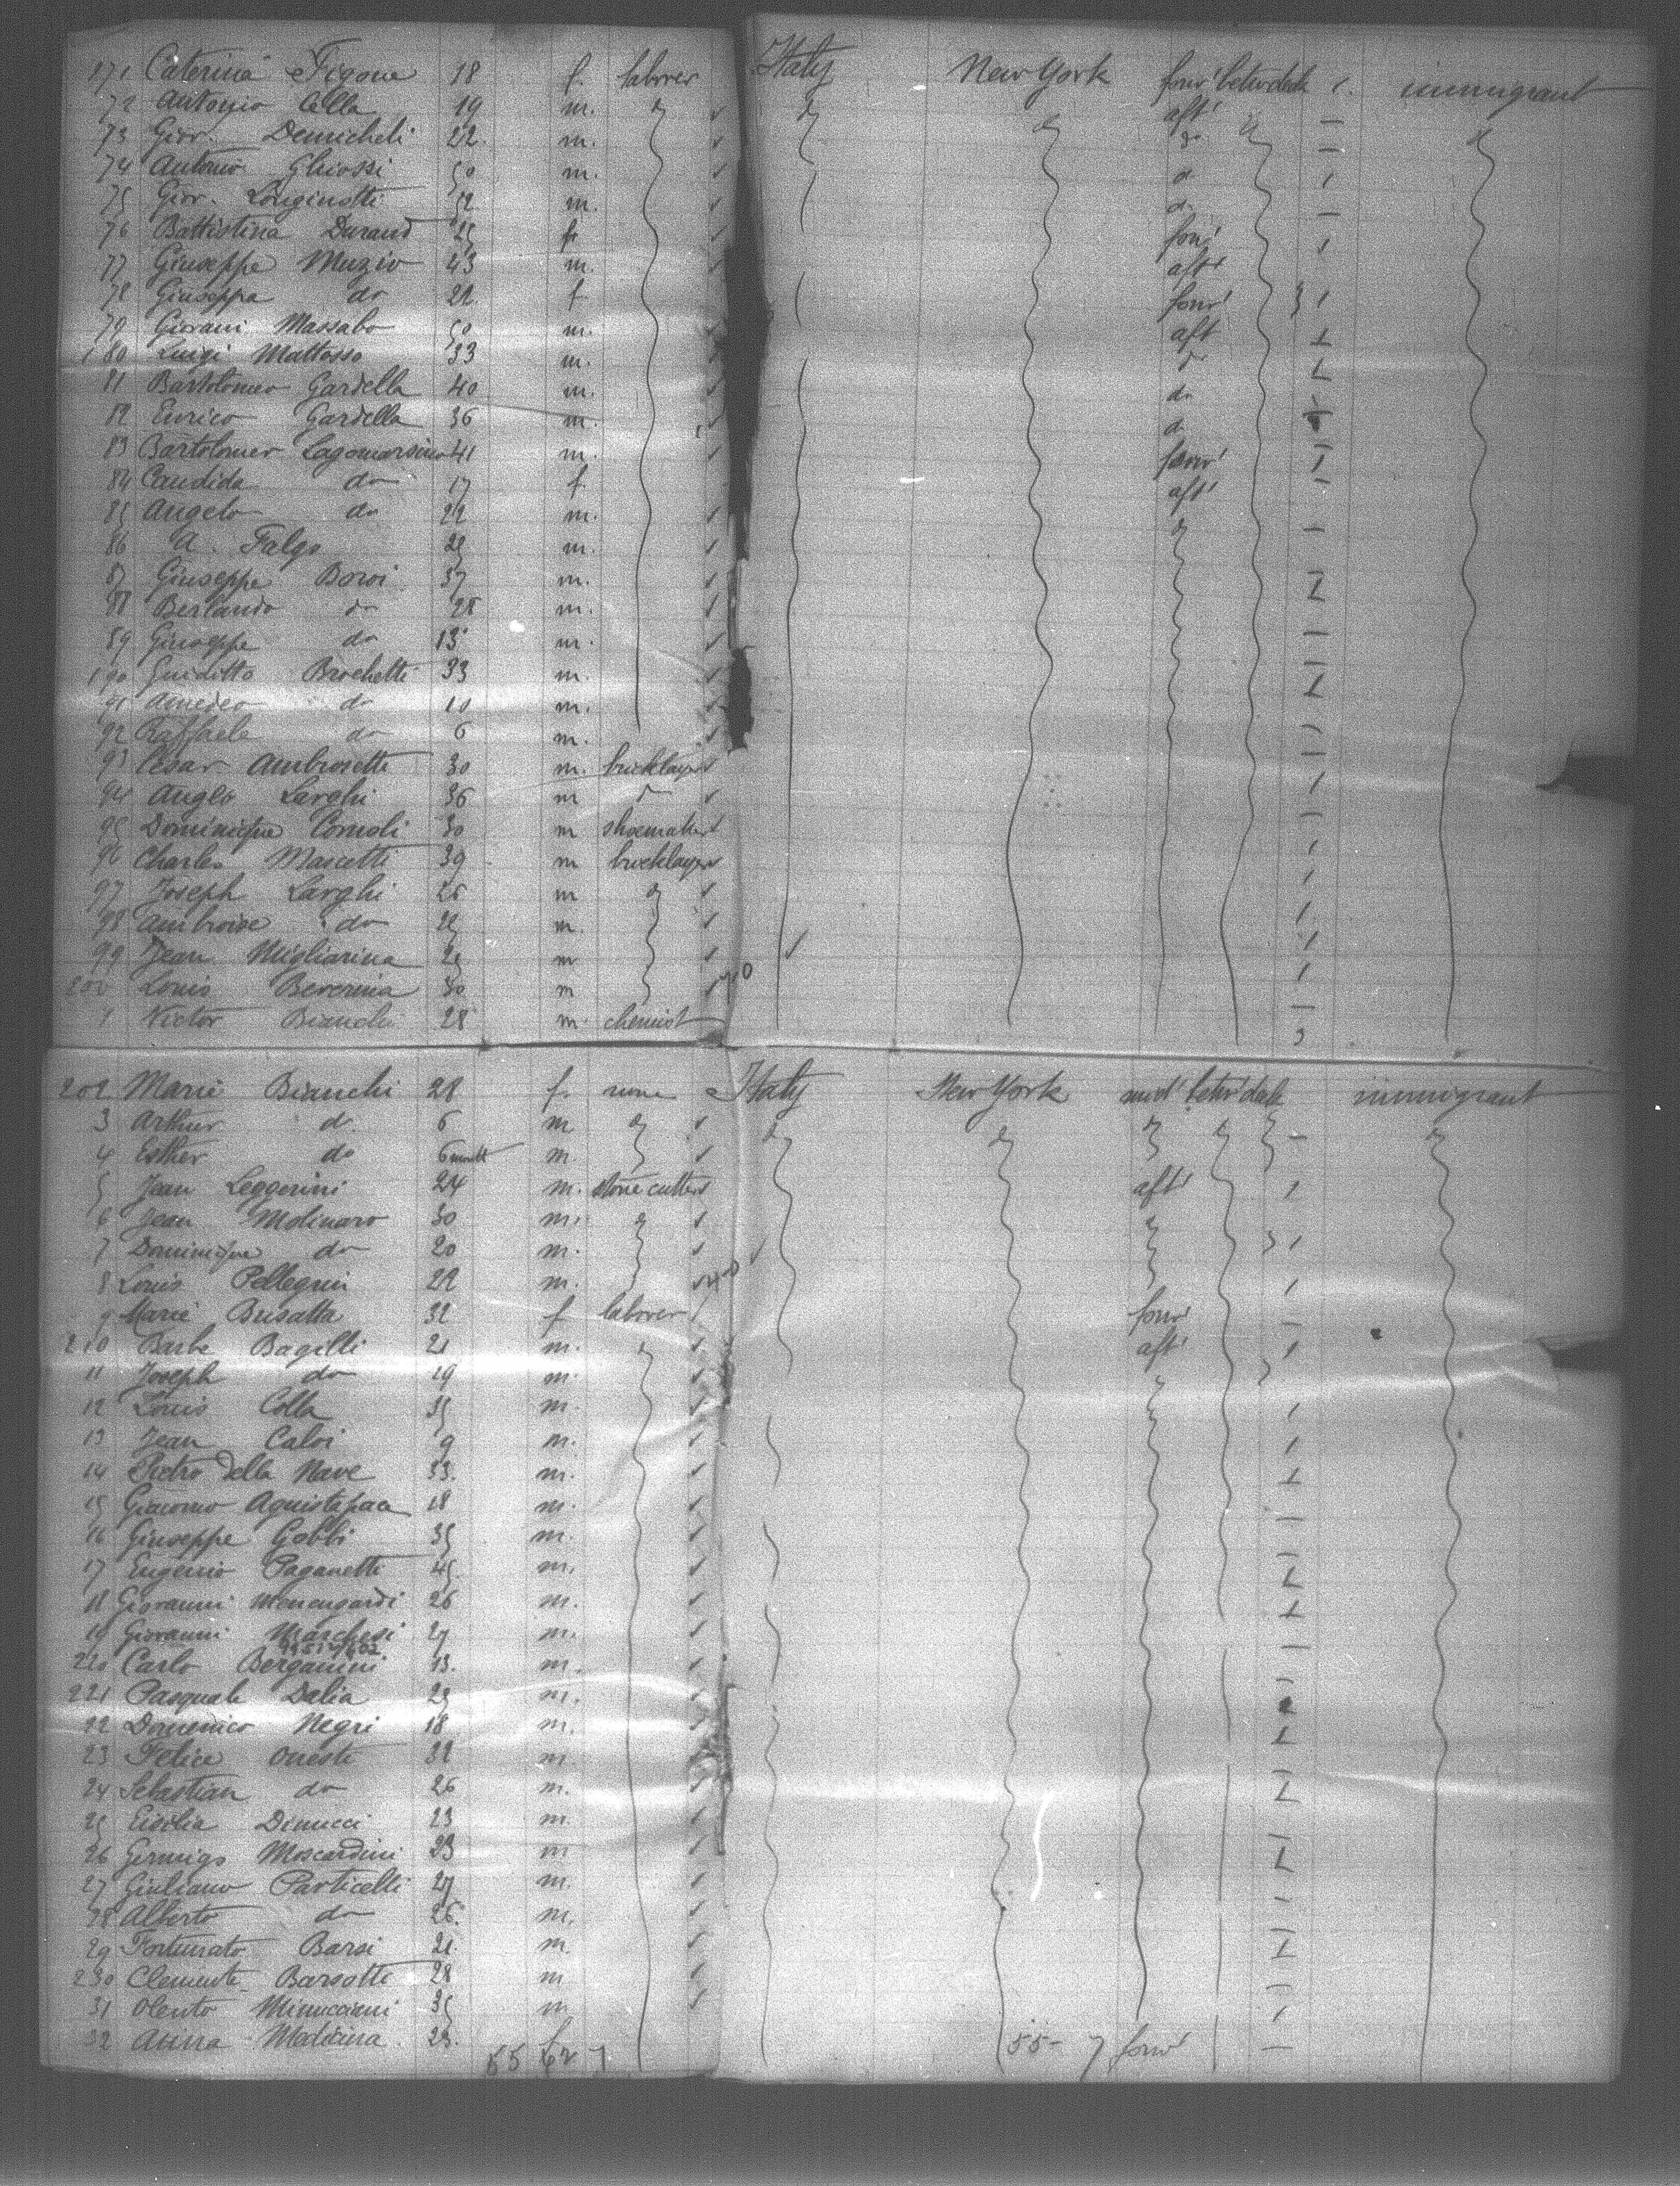 171 Caterina Figone 18 f. laborer Italy New York forw' betw deck 1. immigrant
72 Antonio Cella 19 m. aft'
73 Giov. Demicheli 22 m. do
74 Antonio Ghiossi 50 m. do 1
75 Giov. Longinotti 52 m. do
76 Battistina Durand f forw' 1
77 Giuseppe Muzio 43 m. aft'
78 Giuseppa do 21 f. forw' 1
79 Giovani Massabo 50 m. aft 1
180 Luigi Mattosso 33 m. do 1
81 Bartolomeo Gardella 40 m. do
82 Enrico Gardella 36 m. do
83 Bartolomeo Lagomarsino 41 m. forw' 1
84 Candida do 17 f. aft'
85 Angelo do 22 m.
86 A. Falgo m.
87 Giuseppe Boroi 37 m. 1
88 Berlando do 28 m.
89 Giuseppe do 13 m.
190 Guiditto Brochetti 33 m. 1
91 Amedeo do 10 m.
92 Raffaele do 6 m.
93 Cesar Ambrosetti 30 m. bricklayer 1
94 Anglo Larghi 36 m
95 Dominique Comoli 30 m shoemaker 1
96 Charles Mascetti 39 m bricklayer 1
97 Joseph Larghi 26 m 1
98 Ambroise do 25 m. 1
99 Jean Migliarina 25 m 1
200 Louis Beverina 30 m
1 Victor Bianchi 28 m. chemist
202 Marie Bianchi 28 f. none Italy New York mid' betw' deck immigrant
3 Arthur do. 6 m
4 Esther do 6 month m.
5 Jean Leggerini 24 m. stone cutter aft' 1
6 Jean Molinaro 30 m.
7 Dominique do 20 m. 1
8 Louis Pellegrini 22 m. 1
9 Marie Brusatta 32 f laborer forw'
210 Barbe Bagilli 21 m. aft' 1
11 Joseph do 19 m.
12 Louis Colla 35 m. 1
13 Jean Caloi 9 m. 1
14 Pietro Della Nave 33. m. 1
15 Giacomo Aquistapace 18 m.
16 Giuseppe Gobbi 35 m.
17 Eugenio Paganetti 45 m. 1
18 Giovanni Monengardi 26 m. 1
19 Giovanni Marchesi 27 m.
220 Carlo Bergamini 13. m.
221 Pasquale Dalia 25 m.
22 Domenico Negri 18 m. 1
23 Felice Onesti 32 m
24 Sebastian do 26 m. 1
25 Dinucci 23 m
26 Moscardini 23 m 1
27 Giuliano Particelli 27 m.
28 Alberto do 26. m.
29 Fortunato Barsi 21 m. 1
230 Clemente Barsotti 28 m
31 Olento Minucciani 35 m 1
32 Anna Medicina 23. f forw'
55 62 7 55 - 7